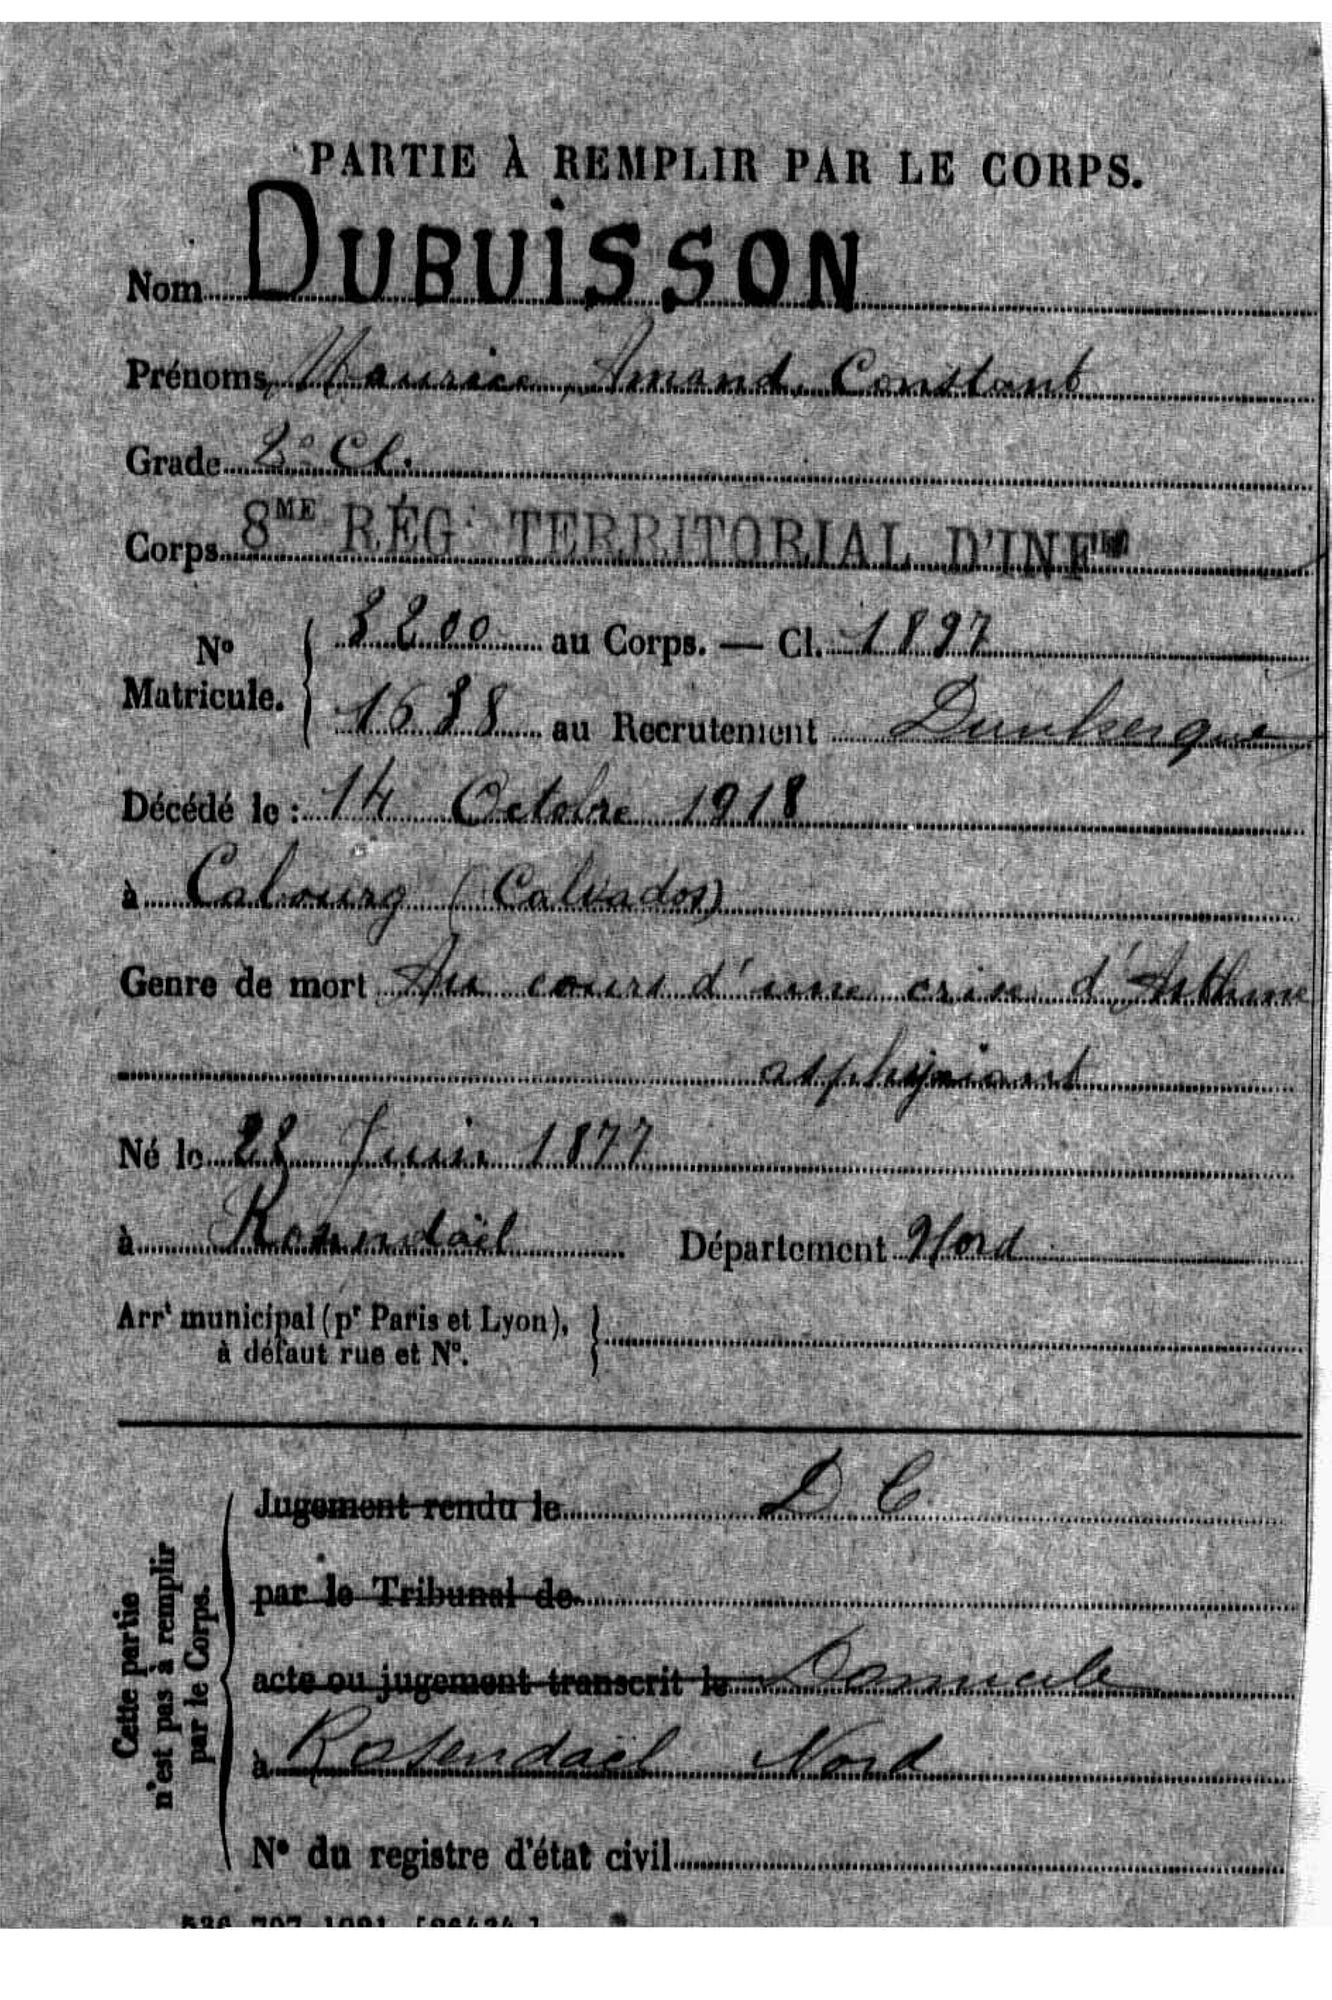 PARTIE À REMPLIR PAR LE CORPS.
Nom DUBUISSON
Prénoms Maurice, Amand, Constant
Grade 2e Cl.
Corps 8ME RÉGT TERRITORIAL D'INFIE
No Matricule. 3200 au Corps. — Cl. 1897
1638 au Recrutement Dunkerque
Décédé le : 14 Octobre 1918
à Cabourg (Calvados)
Genre de mort Au cours d'une crise d'Asthme
asphyxiant
Né le 28 Juin 1877
à Rosendaël Département Nord
Arrt municipal (pr Paris et Lyon),
à défaut rue et No.
Cette partie
n'est pas à remplir
par le Corps.
Jugement rendu le D C
par le Tribunal de
acte ou jugement transcrit le Domicile
à Rosendael Nord
No du registre d'état civil